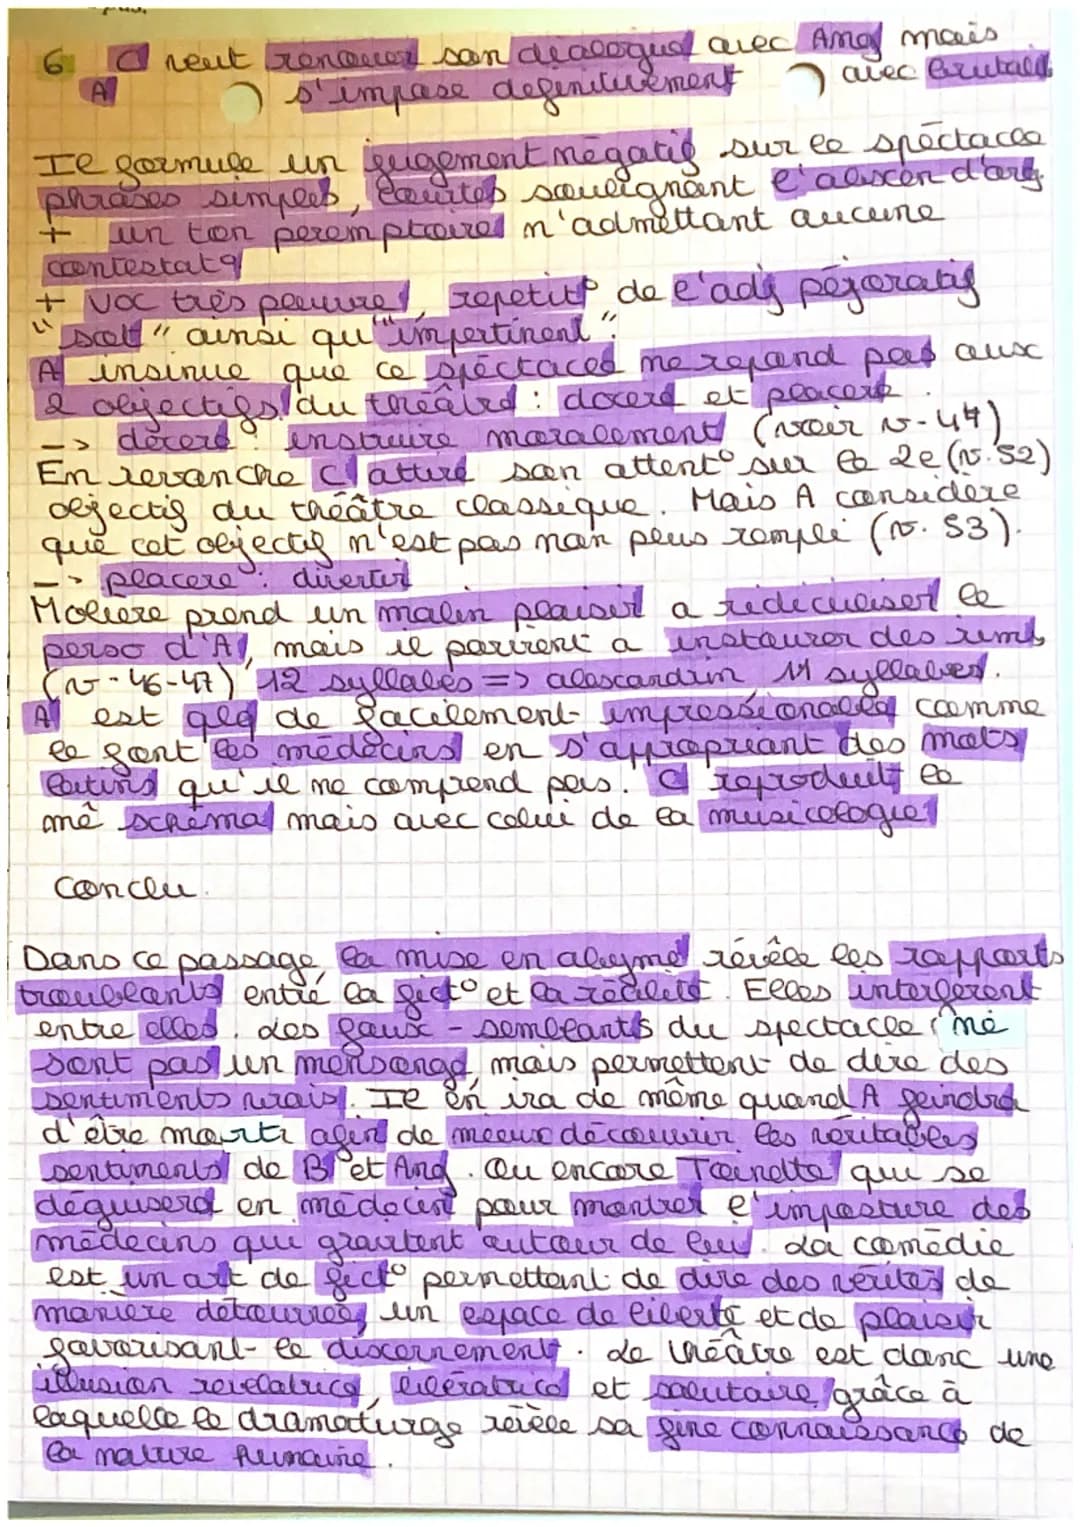 6 C veut renouer son dialogue avec Ang mais
A s'impose definitivement avec brutalit
Il formule un jugement négatif sur le spectacle
phrases simples, courtes soulignant l'abscen d'arg.
+ un ton peremptoire n'admettant aucune
contestat°
+ voc très pauvre repetit° de l'adj péjoratif
"sot" ainsi qu'"impertinent".
A insinue que ce spectacle ne repond pas aux
2 objectifs du théâtre : docere et placere.
-> docere : instruire moralement (voir v-47)
En revanche C attire son attent° sur le 2e (v.52)
objectif du théâtre classique. Mais A considère
que cet objectif n'est pas non plus rempli (v. 53).
-> placere : divertir
Moliere prend un malin plaisir a ridiculiser le
perso d'A, mais il parvient a instaurer des rimes
(v-46-47) 12 syllabes => alexcandrin 11 syllabes.
A est qlq de facilement impressionable comme
le font les médecins en s'appropriant des mots
latins qu'il ne comprend pas. C reproduit le
mê schéma mais avec celui de la musicologie
Conclu.
Dans ce passage, la mise en abyme révèle les rapports
troublants entre la fict° et la réalité. Elles interfèrent
entre elles. Les faux-semblants du spectacle ne
sont pas un mensonge, mais permettent de dire des
sentiments vrais. Il en ira de même quand A feindra
d'être mort afin de mieux découvrir les véritables
sentiments de B et Ang. Ou encore Toinette qui se
déguisera en médecin pour montrer l'imposture des
médecins qui gravitent autour de lui. La comédie
est un art de fict° permettant de dire des vérités de
manière détournée, un espace de liberté et de plaisir
favorisant le discernement. Le théâtre est donc une
illusion révélatrice, libératrice et salutaire grâce à
laquelle le dramaturge révèle sa fine connaissance de
la nature humaine.